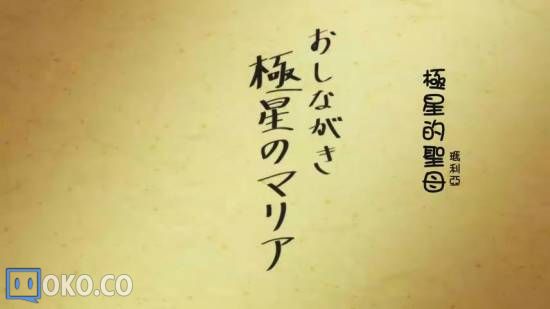 おしながき
極星のマリア
極星的聖母
瑪利亞
MOKO.CO